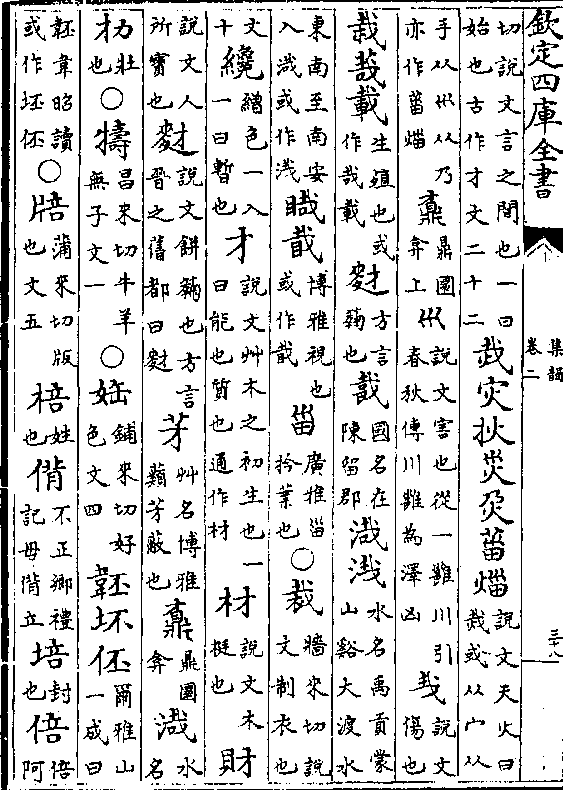 欽定四庫全書
集韻
卷二
三十八
切說文言之間也一曰始也古作才文二十二 烖灾扻災菑 說文天火曰烖或从宀从
手从巛从乃亦作菑 鼒 鼎圜弇上 巛 說文害也從一雝川引春秋傳川雝為澤凶 𢦏 說文傷也
栽㦲載 生殖也或作㦲載 䴭 方言麴也 國名在陳留郡 溨浅 水名禹貢蒙山谿大渡水
東南至南安入溨或作浅 博雅視也或作 甾 廣雅淄也 ○裁 牆來切說文制衣也
文十 纔 繒色一入一曰暫也 才 說文艸木之初生也一曰能也質也通作材 材 說文木挺也 財
說文人所寶也 䴭 說文餅䴷也方言晉之舊都曰䴭 艸名博雅芳蔽也 鼒 鼎圜弇 溨 水名
壯也 ○ 昌來切牛羊無子文一 ○ 鋪來切好色文四 坏伾 爾雅山一成曰
韋昭讀或作坯伾 ○ 蒲來切版也文五 棓 姓也 偝 不正鄉禮記毋偝立 培 封也 倍 倍阿